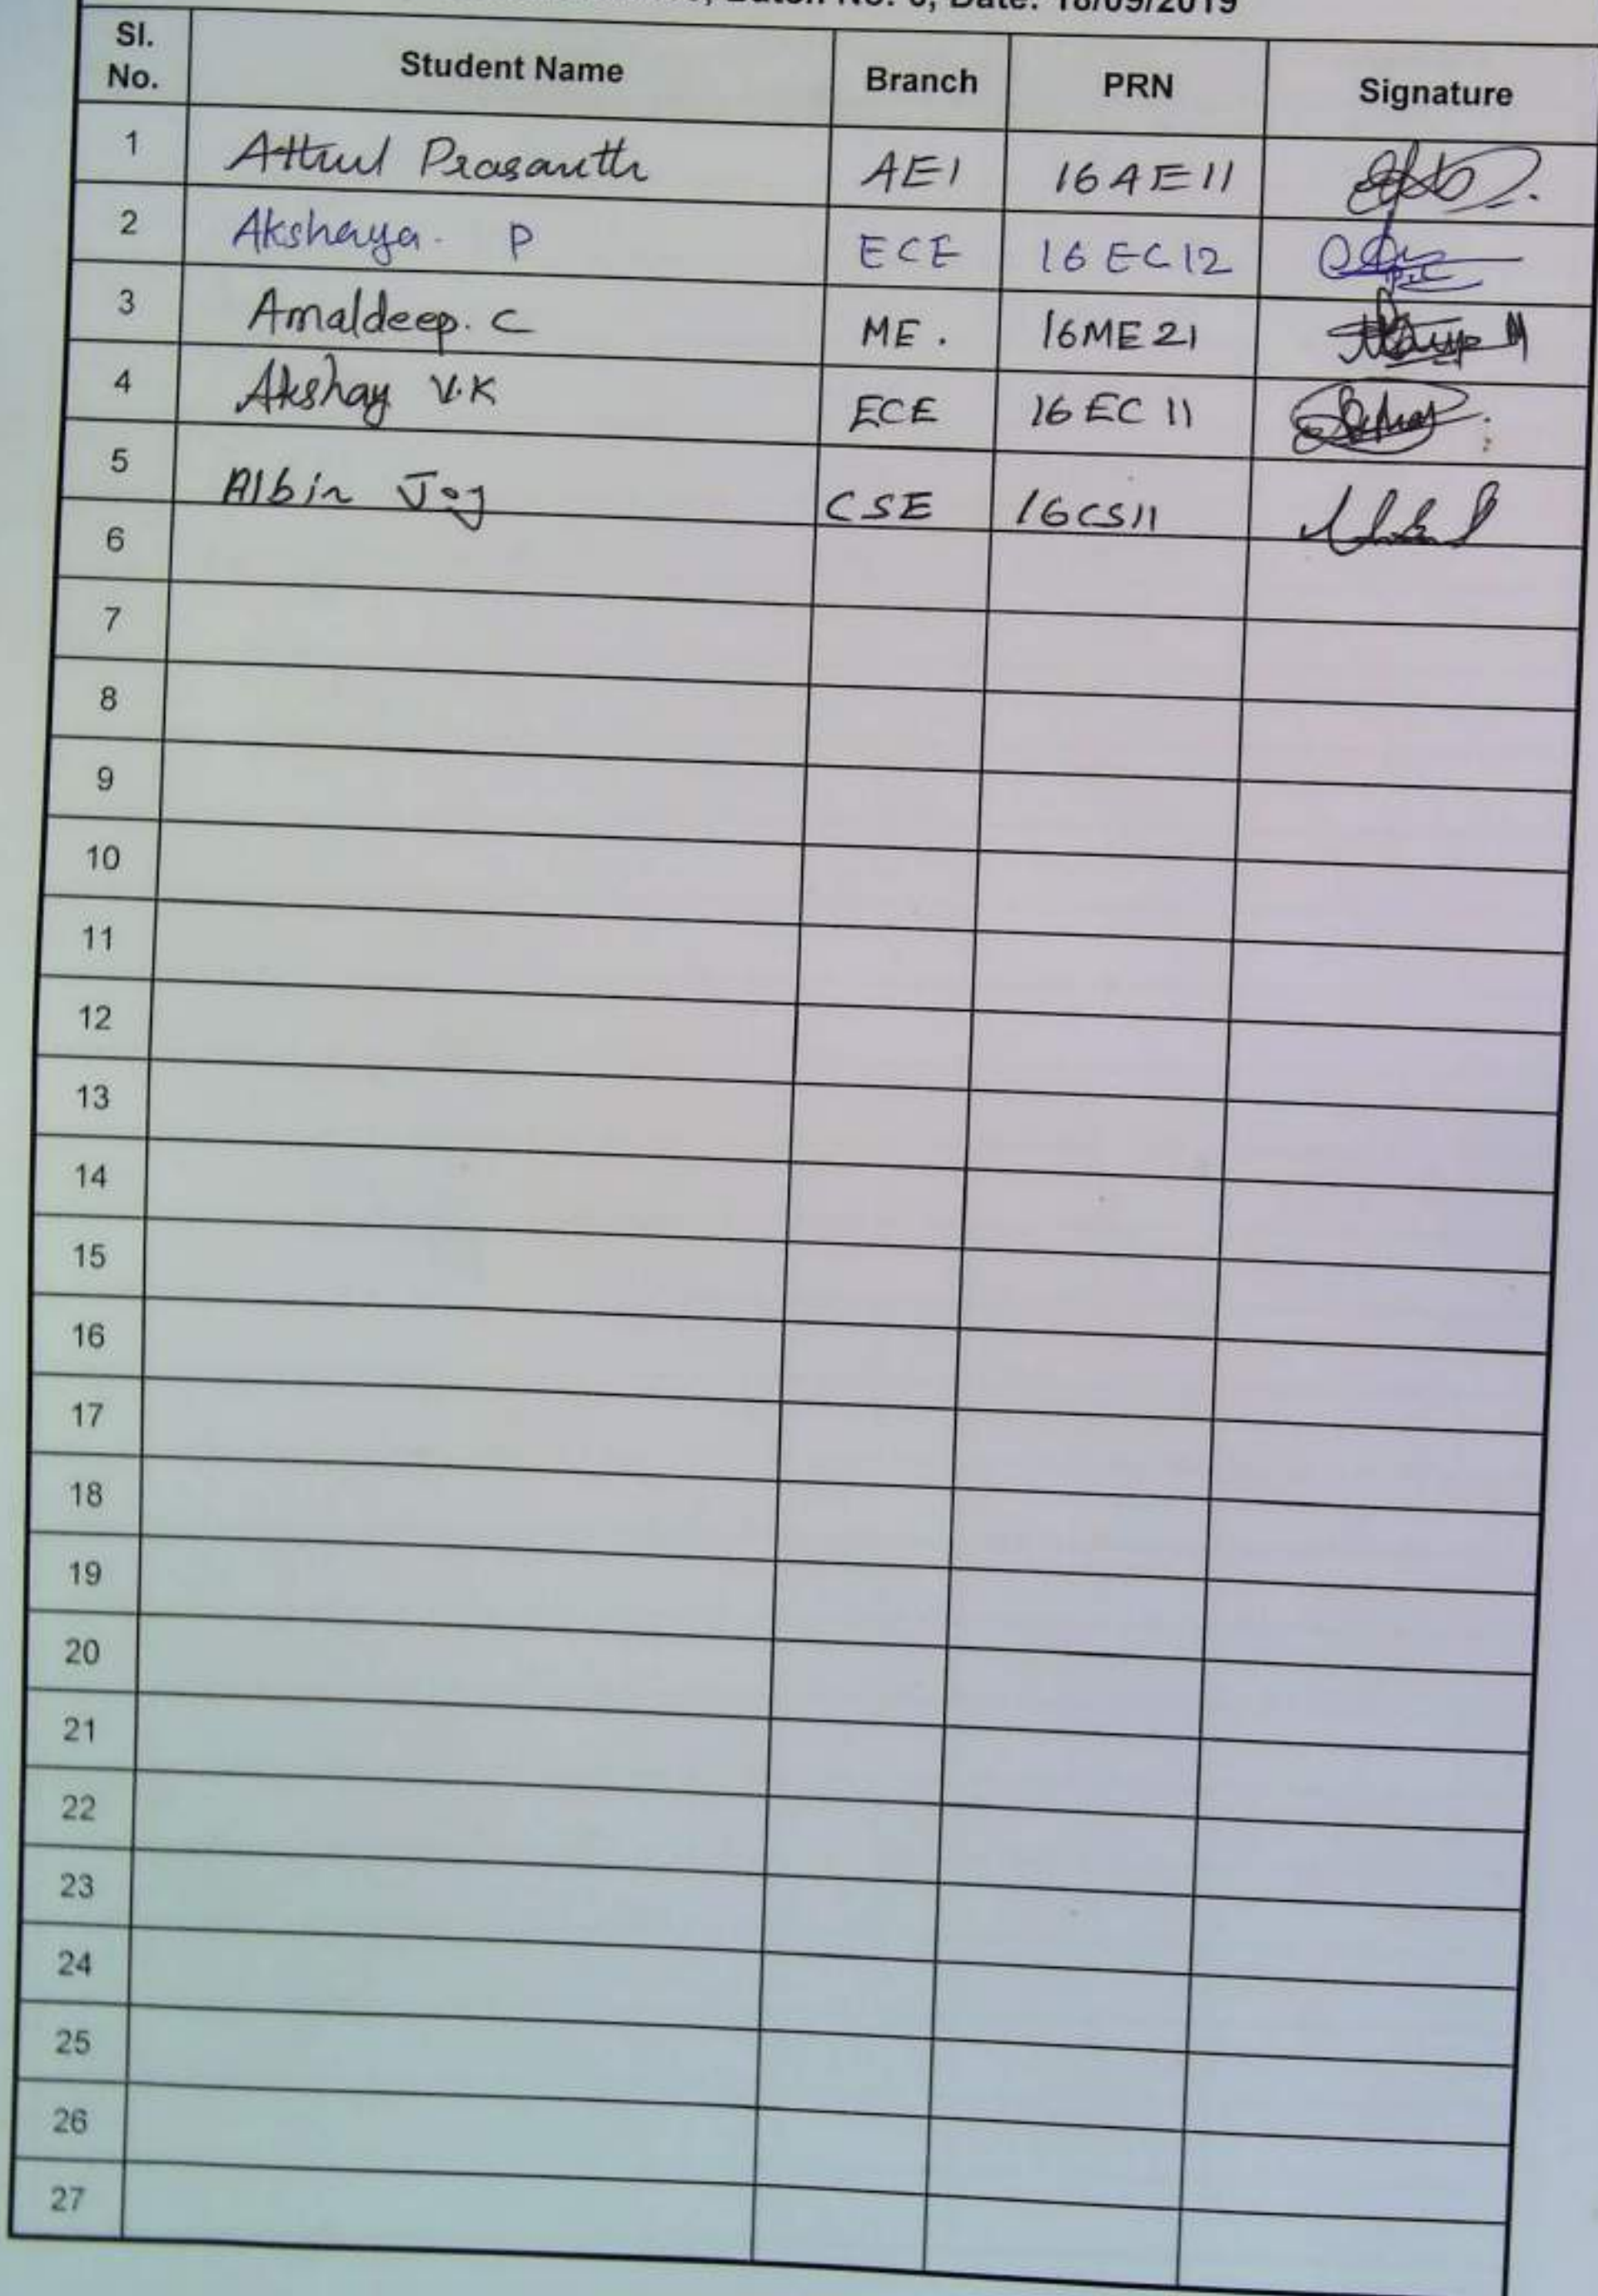 Date: 18/09/2019
Sl. No. Student Name Branch PRN Signature
1 Athul Prasanth AEI 16AE11
2 Akshaya. P ECE 16EC12
3 Amaldeep. C ME. 16ME21
4 Akshay V.K ECE 16EC11
5 Albin Joy CSE 16CS11
6
7
8
9
10
11
12
13
14
15
16
17
18
19
20
21
22
23
24
25
26
27